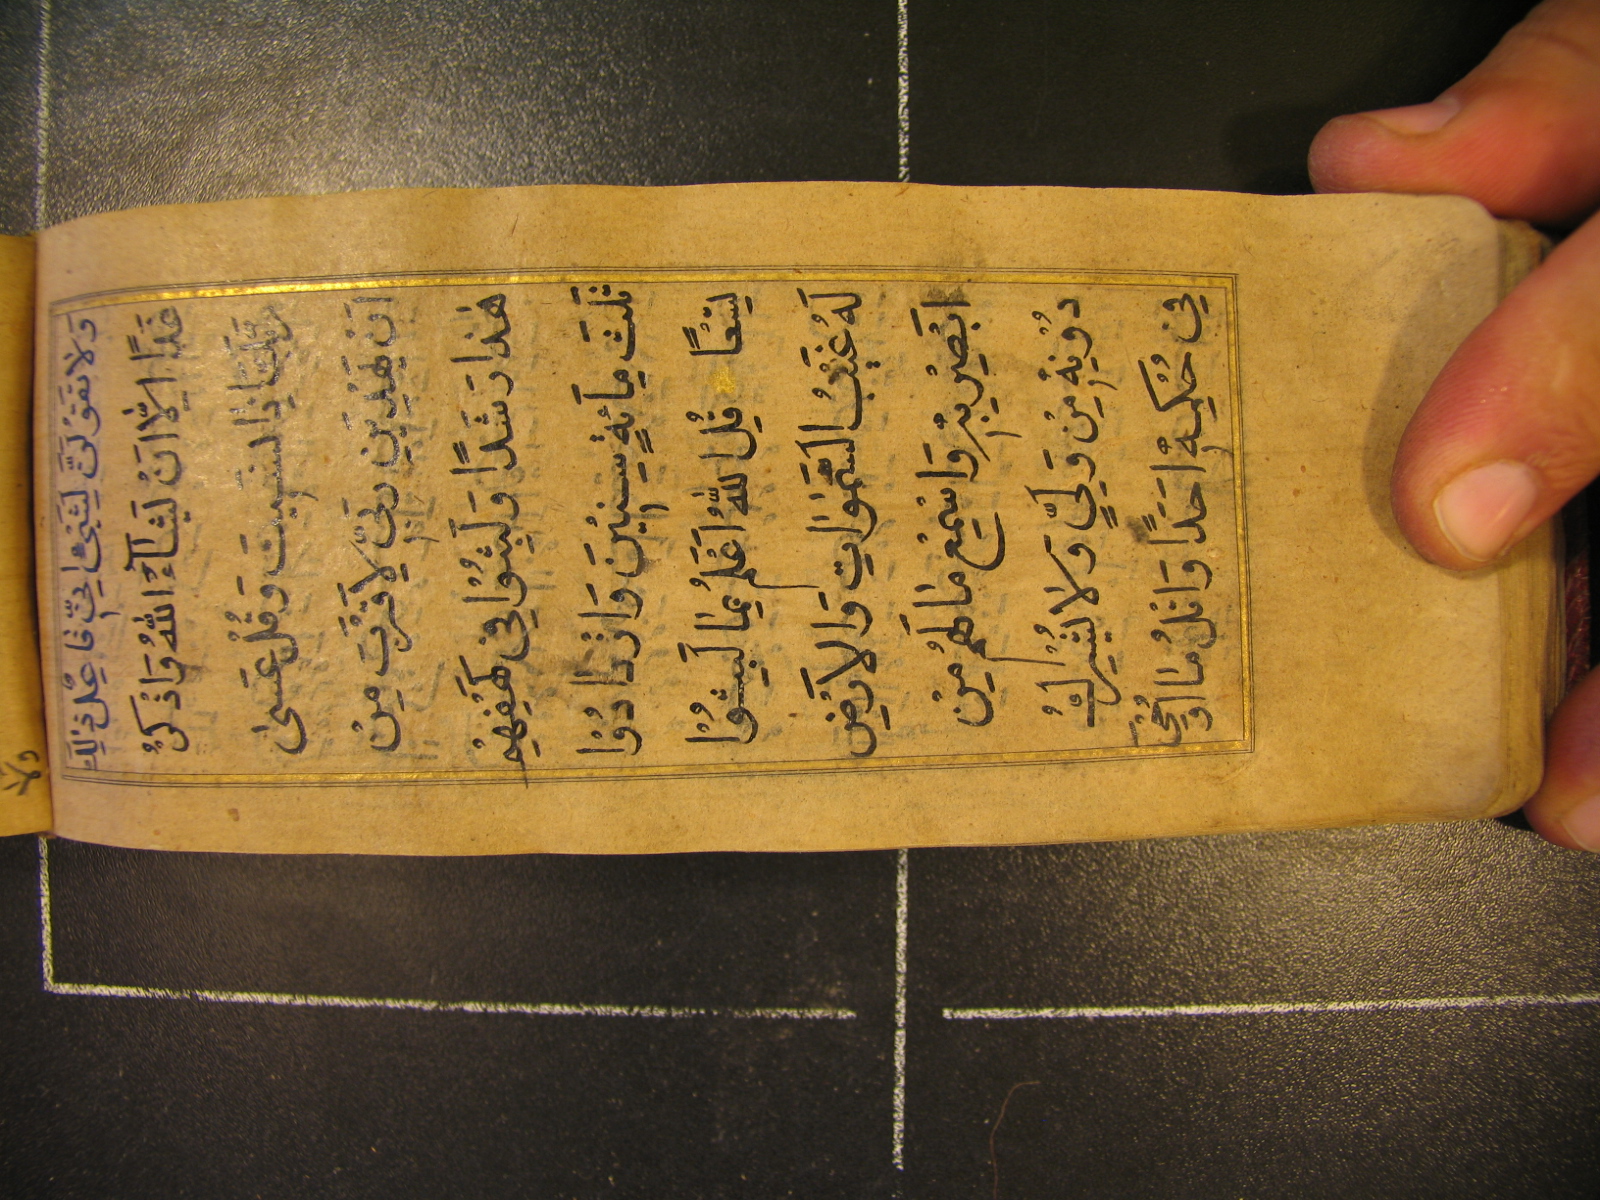 وَلَا تَقُولَنَّ لِشَىْءٍ اِنّٖى فَاعِلٌ ذٰلِكَ
غَدًا اِلَّا اَنْ يَشَآءَ اللّٰهُ وَاذْكُرْ
رَبَّكَ اِذَا نَسِيتَ وَقُلْ عَسٰى
اَنْ يَهْدِيَنِ رَبّٖى لِاَقْرَبَ مِنْ
هٰذَا رَشَدًا وَلَبِثُوا فٖى كَهْفِهِمْ
ثَلٰثَ مِائَةٍ سِنٖينَ وَازْدَادُوا
تِسْعًا قُلِ اللّٰهُ اَعْلَمُ بِمَا لَبِثُوا
لَهُ غَيْبُ السَّمٰوَاتِ وَالْاَرْضِ
اَبْصِرْ بِهٖ وَاَسْمِعْ مَا لَهُمْ مِنْ
دُونِهٖ مِنْ وَلِيٍّ وَلَا يُشْرِكُ
فٖى حُكْمِهٖ اَحَدًا وَاتْلُ مَا اُوحِىَ